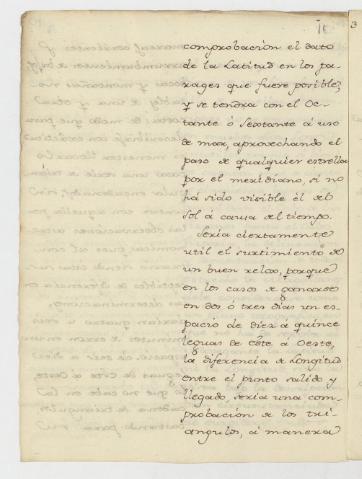 comprobacion el dato
de la Latitud en los pa-
rages que fuere posible,
y se tendra con el Oc-
tante ó Sextante á uso
de mar, aprovechando el
paso de qualquier estrella
por el meridiano, si no
há sido visible él del
Sol á causa del tiempo.
Seria ciertamente
util el surtimiento de
un buen relox, porque
en los casos de ganarse
en dos ó tres dias un es-
pacio de diez á quince
leguas de Este á Oeste,
la diferencia de Longitud
entre el punto salido y
llegado, seria una com-
probacion de los tri-
angulos, á manera